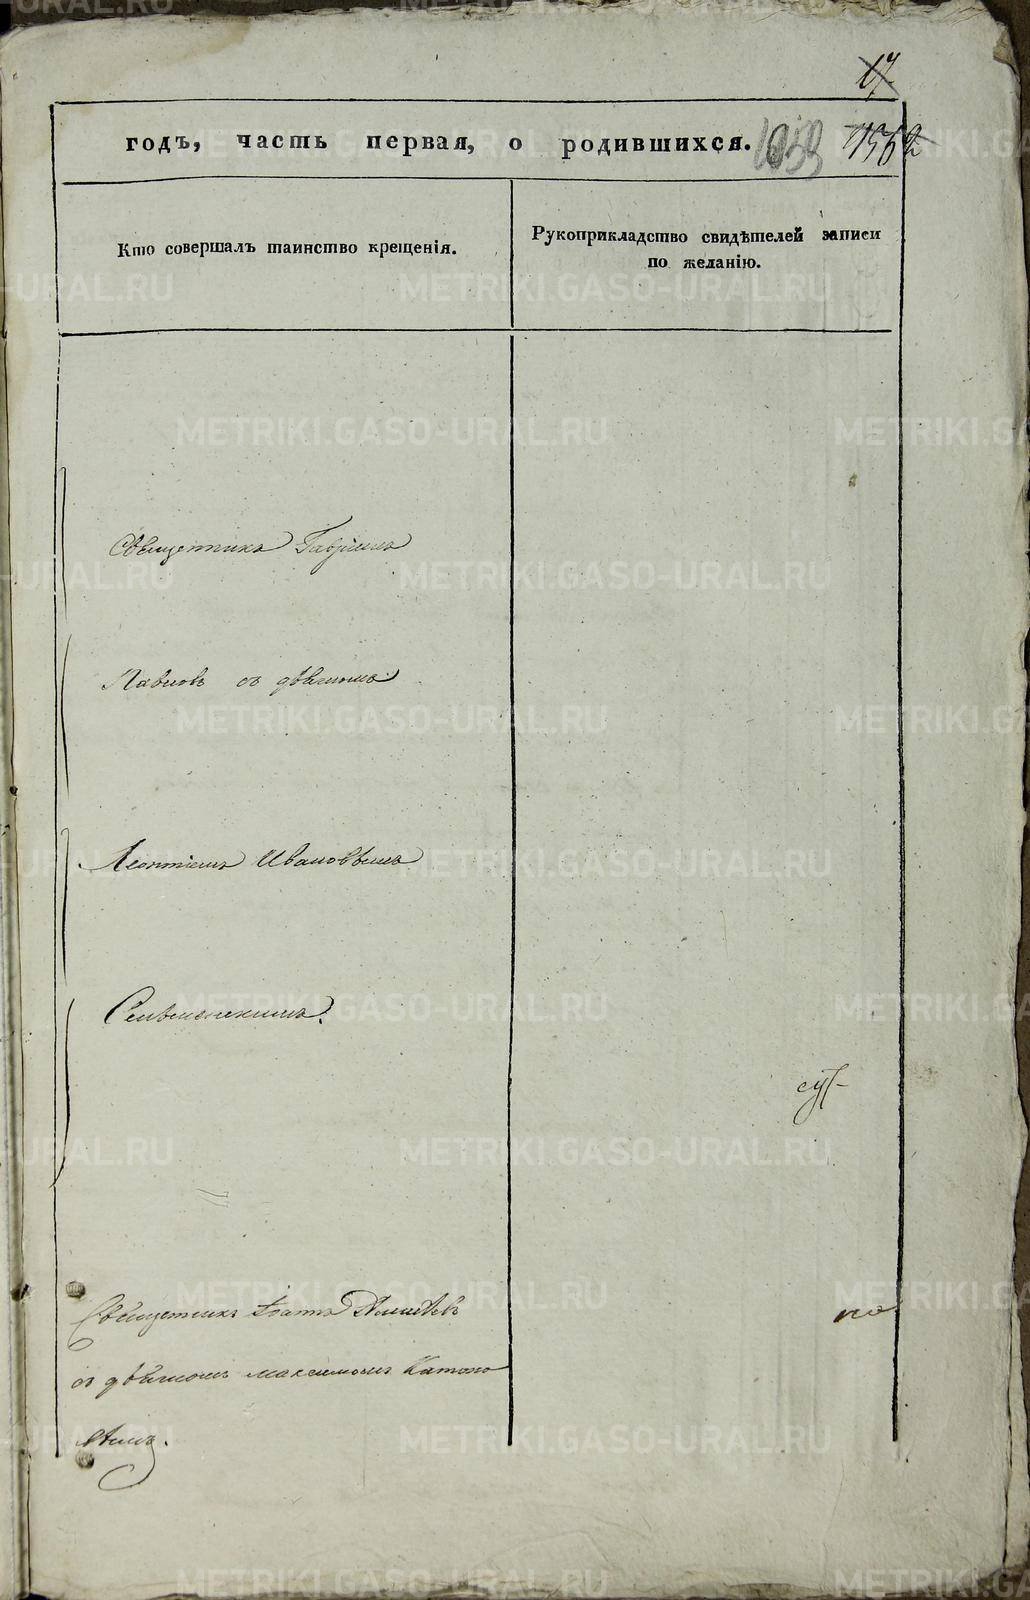 17
годъ, часть первая, о родившихся. 1053 1562
Кто совершалъ таинство крещенія.
Рукоприкладство свидѣтелей записи
по желанію.
Священникъ Гавріилъ
Павловъ съ дьячкомъ
Леонтіемъ Ивановымъ
Сельменскимъ.
Священникъ Іоаннъ
съ дьячкомъ Максимомъ
METRIKI.GASO-URAL.RU